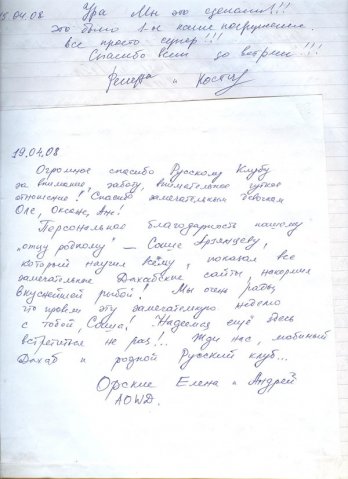 15.04.08 Ура Мы это сделали!!!
это было 1-е наше погружение.
все просто супер!!!
Спасибо всем до встречи!!!
и Костя
19.04.08
Огромное спасибо Русскому Клубу
за внимание, заботу, внимательное чуткое
отношение! Спасибо замечательным девочкам
Оле, Оксане, Ане!
Персональное благодарность нашему
"отцу родному" – Саше
который научил всему, показал все
замечательные Дахабские сайты, накормил
вкуснейшей рыбой! Мы очень рады,
что провели эту замечательную неделю
с тобой, Саша! Надеемся ещё здесь
встретиться не раз!.. Жди нас, любимый
Дахаб и родной Русский клуб...
Орские Елена и Андрей
AOWD.